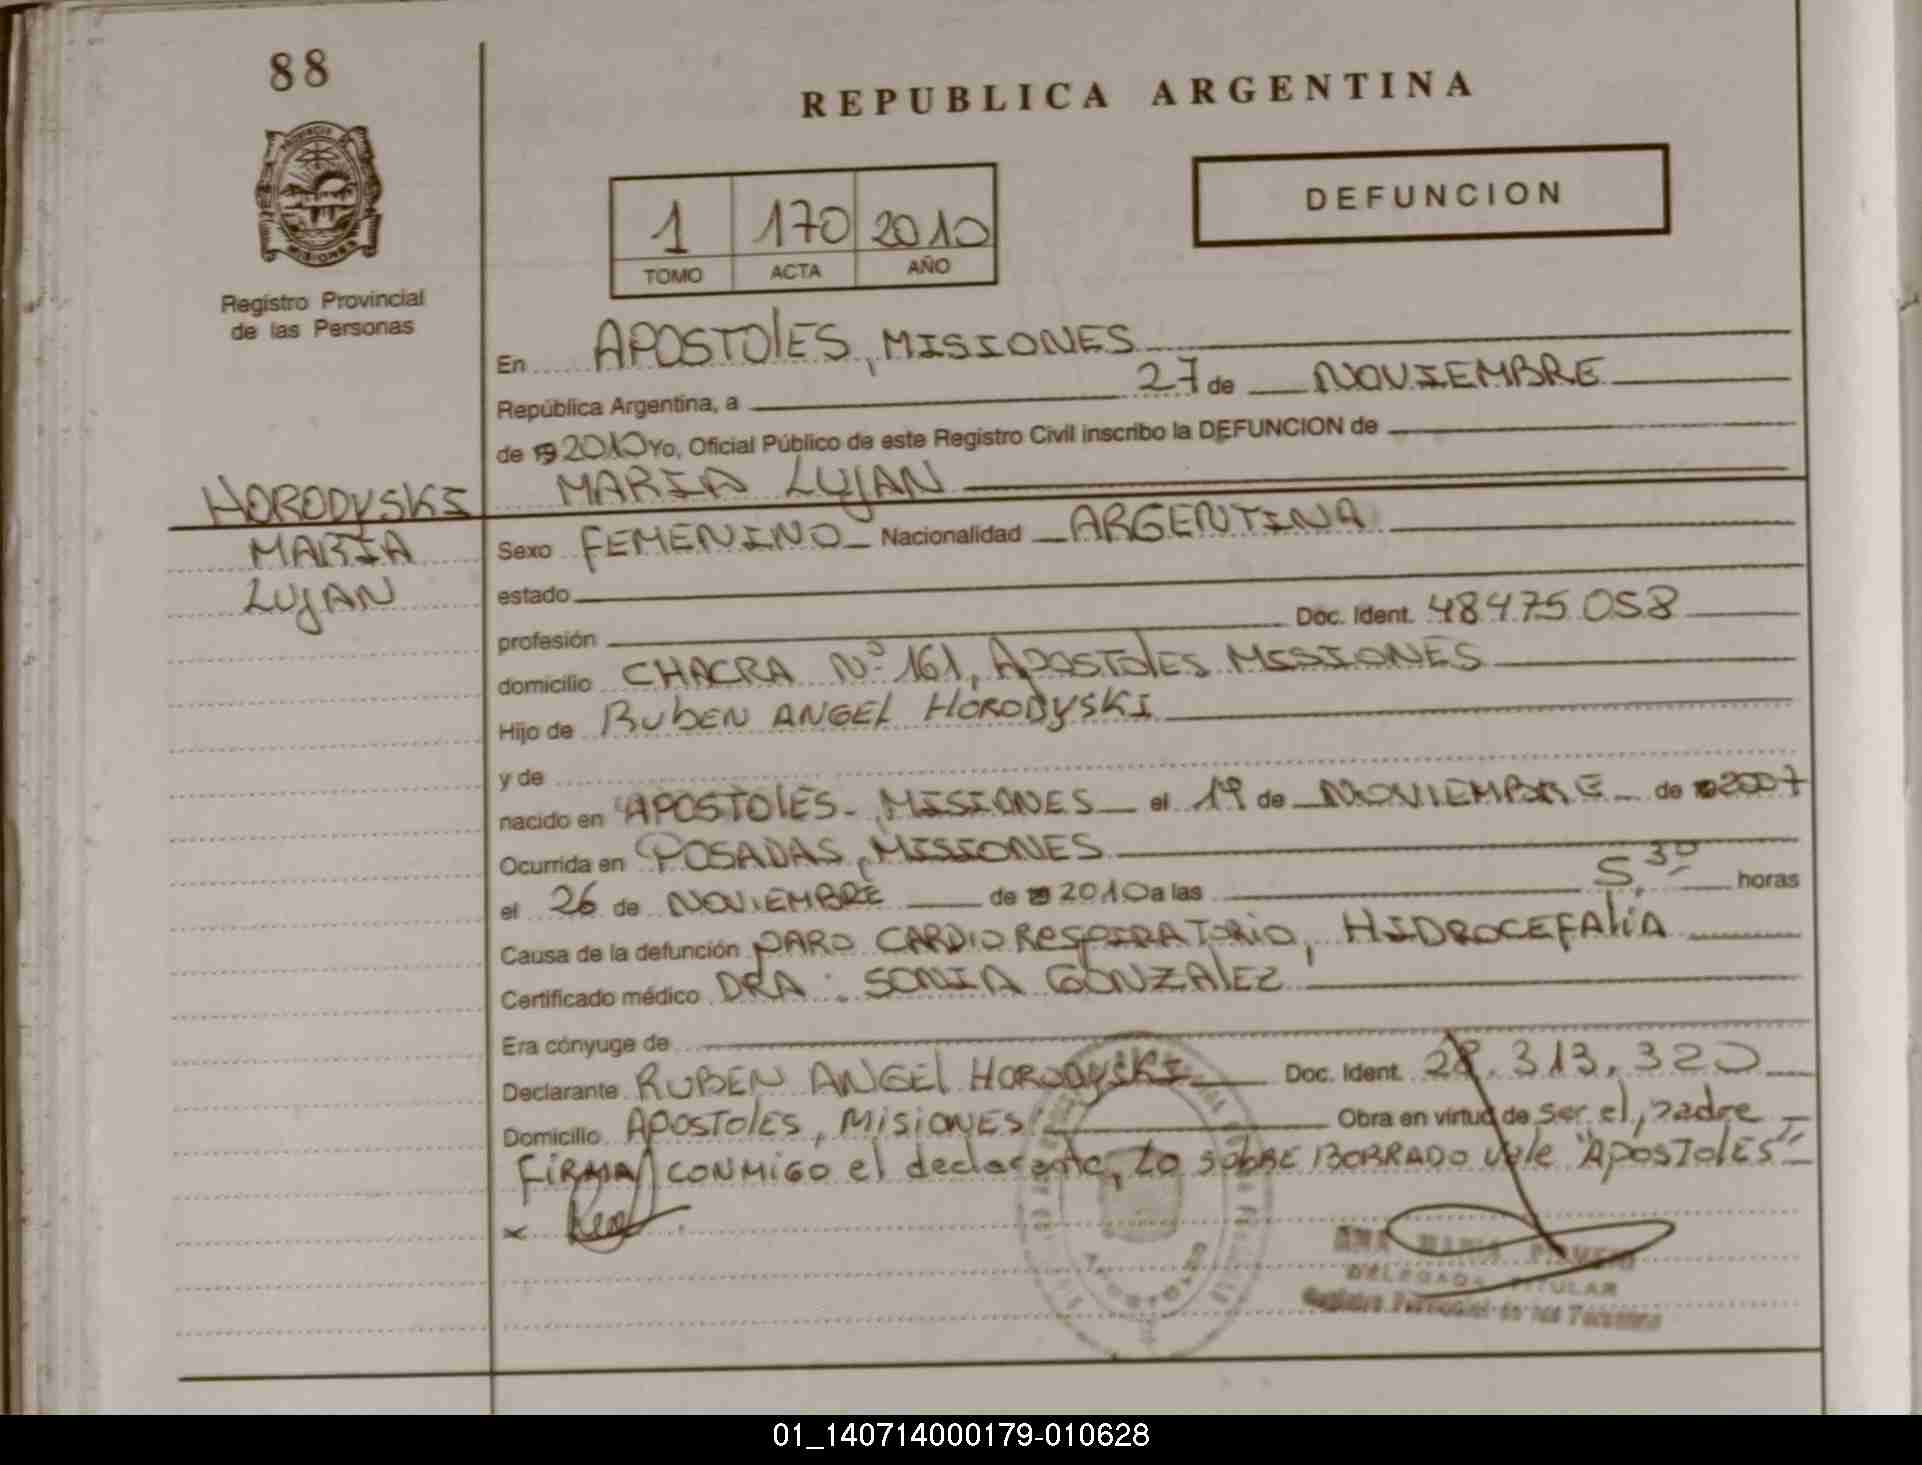 88
REPUBLICA ARGENTINA
PROVINCIA
MISIONES
Registro Provincial
de las Personas
DEFUNCION
1 170 2010
TOMO ACTA AÑO
En APOSTOLES, MISIONES
República Argentina, a 27 de NOVIEMBRE
de 19 2010 Yo, Oficial Público de este Registro Civil inscribo la DEFUNCION de
HORODYSKI MARIA LUJAN
MARIA
LUJAN
Sexo FEMENINO Nacionalidad ARGENTINA
estado
profesión Doc. Ident. 48475.058
domicilio CHACRA Nº 161, APOSTOLES MISIONES
Hijo de RUBEN ANGEL HORODYSKI
y de
nacido en APOSTOLES - MISIONES el 19 de NOVIEMBRE de 2007
Ocurrida en POSADAS, MISIONES
el 26 de NOVIEMBRE de 2010 a las 5,30 horas
Causa de la defunción PARO CARDIO RESPIRATORIO, HIDROCEFALIA
Certificado médico DRA: SONIA GONZALEZ
Era cónyuge de
Declarante RUBEN ANGEL HORODYSKI Doc. Ident. 28.313.320
Domicilio APOSTOLES, MISIONES Obra en virtud de ser el padre
FIRMA CONMIGO el declarante, Lo SOBRE BORRADO vale "APOSTOLES"
x
ANA MARIA
DELEGADA TITULAR
Registro Provincial de las Personas
01_140714000179-010628